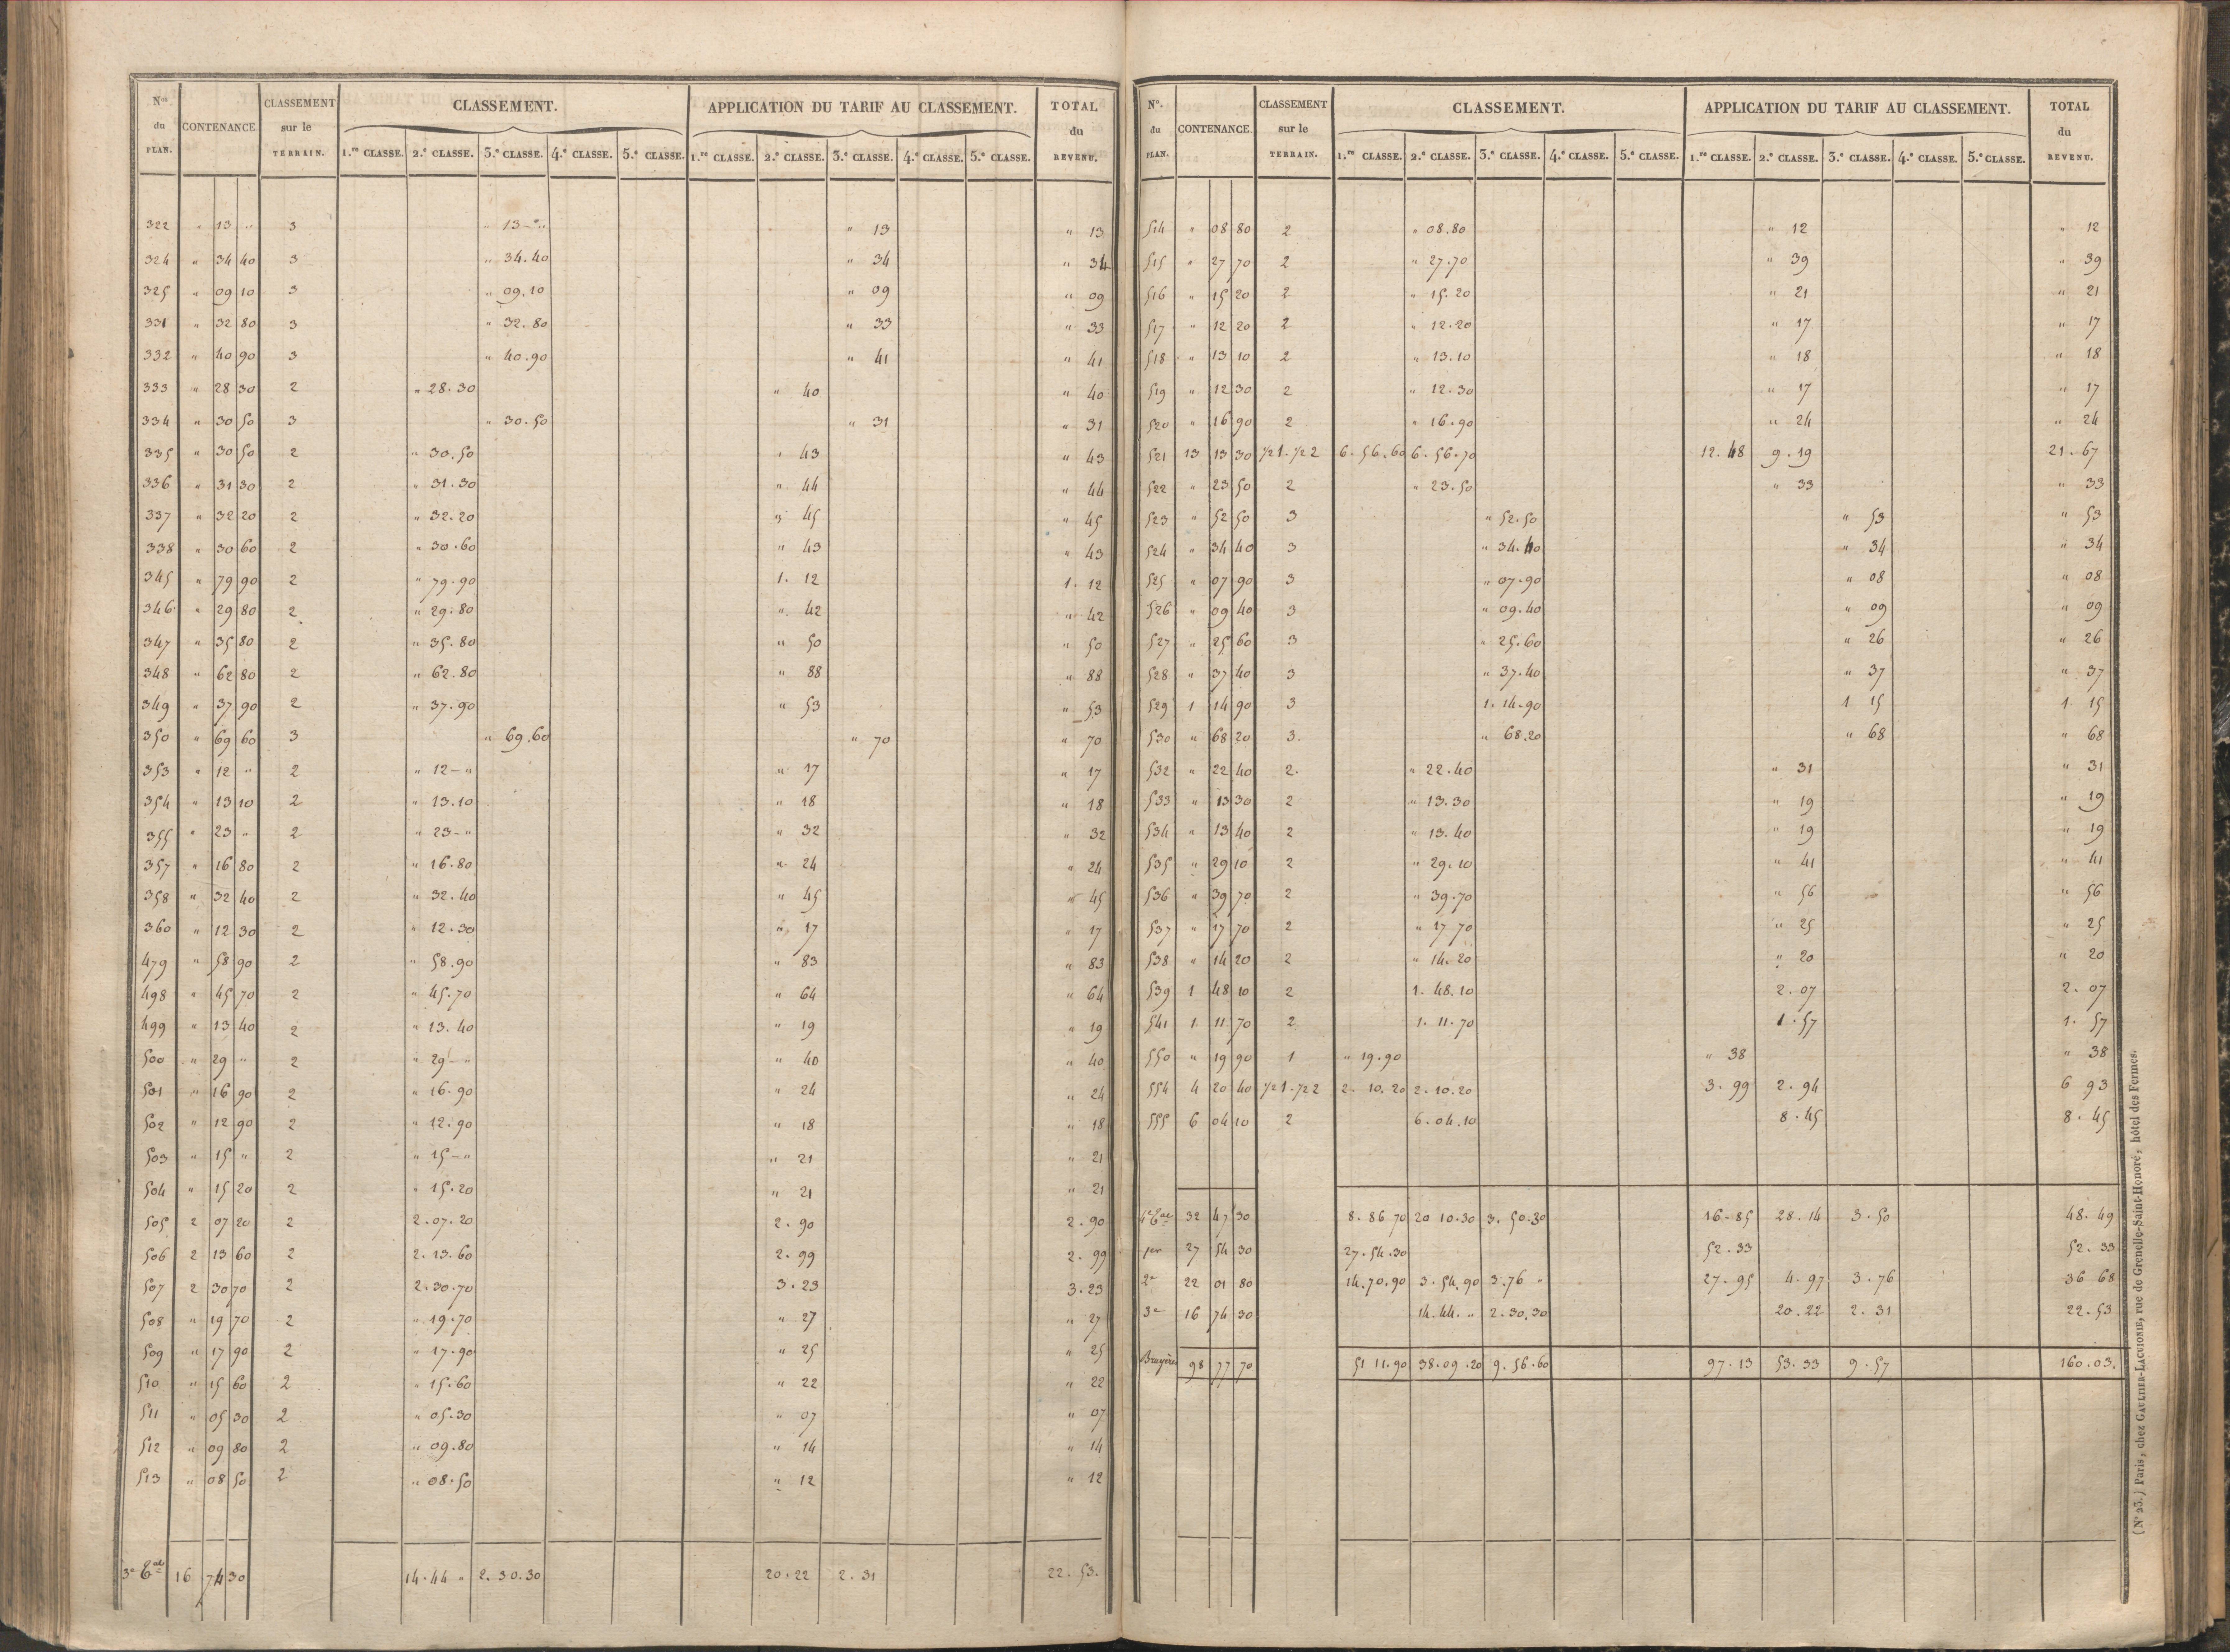 Nos du PLAN. CONTENANCE CLASSEMENT sur le TERRAIN. CLASSEMENT. APPLICATION DU TARIF AU CLASSEMENT. TOTAL du REVENU.
1.re CLASSE. 2.e CLASSE. 3.e CLASSE. 4.e CLASSE. 5.e CLASSE. 1.re CLASSE. 2.e CLASSE. 3.e CLASSE. 4.e CLASSE. 5.e CLASSE.
322 " 13 " 3 " 13 - " " 13 " 13
324 " 34 40 3 " 34.40 " 34 " 34
325 " 09 10 3 " 09.10 " 09 " 09
331 " 32 80 3 " 32.80 " 33 " 33
332 " 40 90 3 " 40.90 " 41 " 41
333 " 28 30 2 " 28.30 " 40 " 40
334 " 30 50 3 " 30.50 " 31 " 31
335 " 30 50 2 " 30.50 " 43 " 43
336 " 31 30 2 " 31.30 " 44 " 44
337 " 32 20 2 " 32.20 " 45 " 45
338 " 30 60 2 " 30.60 " 43 " 43
345 " 79 90 2 " 79.90 1. 12 1. 12
346 " 29 80 2 " 29.80 " 42 " 42
347 " 35 80 2 " 35.80 " 50 " 50
348 " 62 80 2 " 62.80 " 88 " 88
349 " 37 90 2 " 37.90 " 53 " 53
350 " 69 60 3 " 69.60 " 70 " 70
353 " 12 " 2 " 12 - " " 17 " 17
354 " 13 10 2 " 13.10 " 18 " 18
355 " 23 " 2 " 23 - " " 32 " 32
357 " 16 80 2 " 16.80 " 24 " 24
358 " 32 40 2 " 32.40 " 45 " 45
360 " 12 30 2 " 12.30 " 17 " 17
479 " 58 90 2 " 58.90 " 83 " 83
498 " 45 70 2 " 45.70 " 64 " 64
499 " 13 40 2 " 13.40 " 19 " 19
500 " 29 " 2 " 29 - " " 40 " 40
501 " 16 90 2 " 16.90 " 24 " 24
502 " 12 90 2 " 12.90 " 18 " 18
503 " 15 " 2 " 15 - " " 21 " 21
504 " 15 20 2 " 15.20 " 21 " 21
505 2 07 20 2 2.07.20 2.90 2.90
506 2 13 60 2 2.13.60 2.99 2.99
507 2 30 70 2 2.30.70 3.23 3.23
508 " 19 70 2 " 19.70 " 27 " 27
509 " 17 90 2 " 17.90 " 25 " 25
510 " 15 60 2 " 15.60 " 22 " 22
511 " 05 30 2 " 05.30 " 07 " 07
512 " 09 80 2 " 09.80 " 14 " 14
513 " 08 50 2 " 08.50 " 12 " 12
3e 16 74 30 14.44 " 2.30.30 20.22 2.31 22.53.
No. du PLAN. CONTENANCE CLASSEMENT sur le TERRAIN. CLASSEMENT. APPLICATION DU TARIF AU CLASSEMENT. TOTAL du REVENU.
1.re CLASSE. 2.e CLASSE. 3.e CLASSE. 4.e CLASSE. 5.e CLASSE. 1.re CLASSE. 2.e CLASSE. 3.e CLASSE. 4.e CLASSE. 5.e CLASSE.
514 " 08 80 2 " 08.80 " 12 " 12
515 " 27 70 2 " 27.70 " 39 " 39
516 " 15 20 2 " 15.20 " 21 " 21
517 " 12 20 2 " 12.20 " 17 " 17
518 " 13 10 2 " 13.10 " 18 " 18
519 " 12 30 2 " 12.30 " 17 " 17
520 " 16 90 2 " 16.90 " 24 " 24
521 13 13 30 1/2 1. 1/2 2 6.56.60 6.56.70 12.48 9.19 21.67
522 " 23 50 2 " 23.50 " 33 " 33
523 " 52 50 3 " 52.50 " 53 " 53
524 " 34 40 3 " 34.40 " 34 " 34
525 " 07 90 3 " 07.90 " 08 " 08
526 " 09 40 3 " 09.40 " 09 " 09
527 " 25 60 3 " 25.60 " 26 " 26
528 " 37 40 3 " 37.40 " 37 " 37
529 1 14 90 3 1.14.90 1 15 1 15
530 " 68 20 3. " 68.20 " 68 " 68
532 " 22 40 2. " 22.40 " 31 " 31
533 " 13 30 2 " 13.30 " 19 " 19
534 " 13 40 2 " 13.40 " 19 " 19
535 " 29 10 2 " 29.10 " 41 " 41
536 " 39 70 2 " 39.70 " 56 " 56
537 " 17 70 2 " 17 70 " 25 " 25
538 " 14 20 2 " 14.20 " 20 " 20
539 1 48 10 2 1.48.10 2.07 2.07
541 1 11 70 2 1.11.70 1.57 1.57
550 " 19 90 1 " 19.90 " 38 " 38
554 4 20 40 1/2 1. 1/2 2 2.10.20 2.10.20 3.99 2.94 6 93
555 6 04 10 2 6.04.10 8.45 8.45
4e 32 47 30 8.86 70 20 10.30 3.50.30 16.85 28.14 3.50 48.49
1er 27 54 30 27.54.30 52.33 52.33
2e 22 01 80 14.70.90 3.54.90 3.76 " 27.95 4.97 3.76 36 68
3e 16 74 30 14.44. " 2.30.30 20.22 2.31 22.53
Bruyères 98 77 70 51 11.90 38.09.20 9.56.60 97.13 53.33 9.57 160.03.
(N° 23.) Paris, chez GAULTIER-LAGUIONIE, rue de Grenelle-Saint-Honoré, hôtel des Fermes.